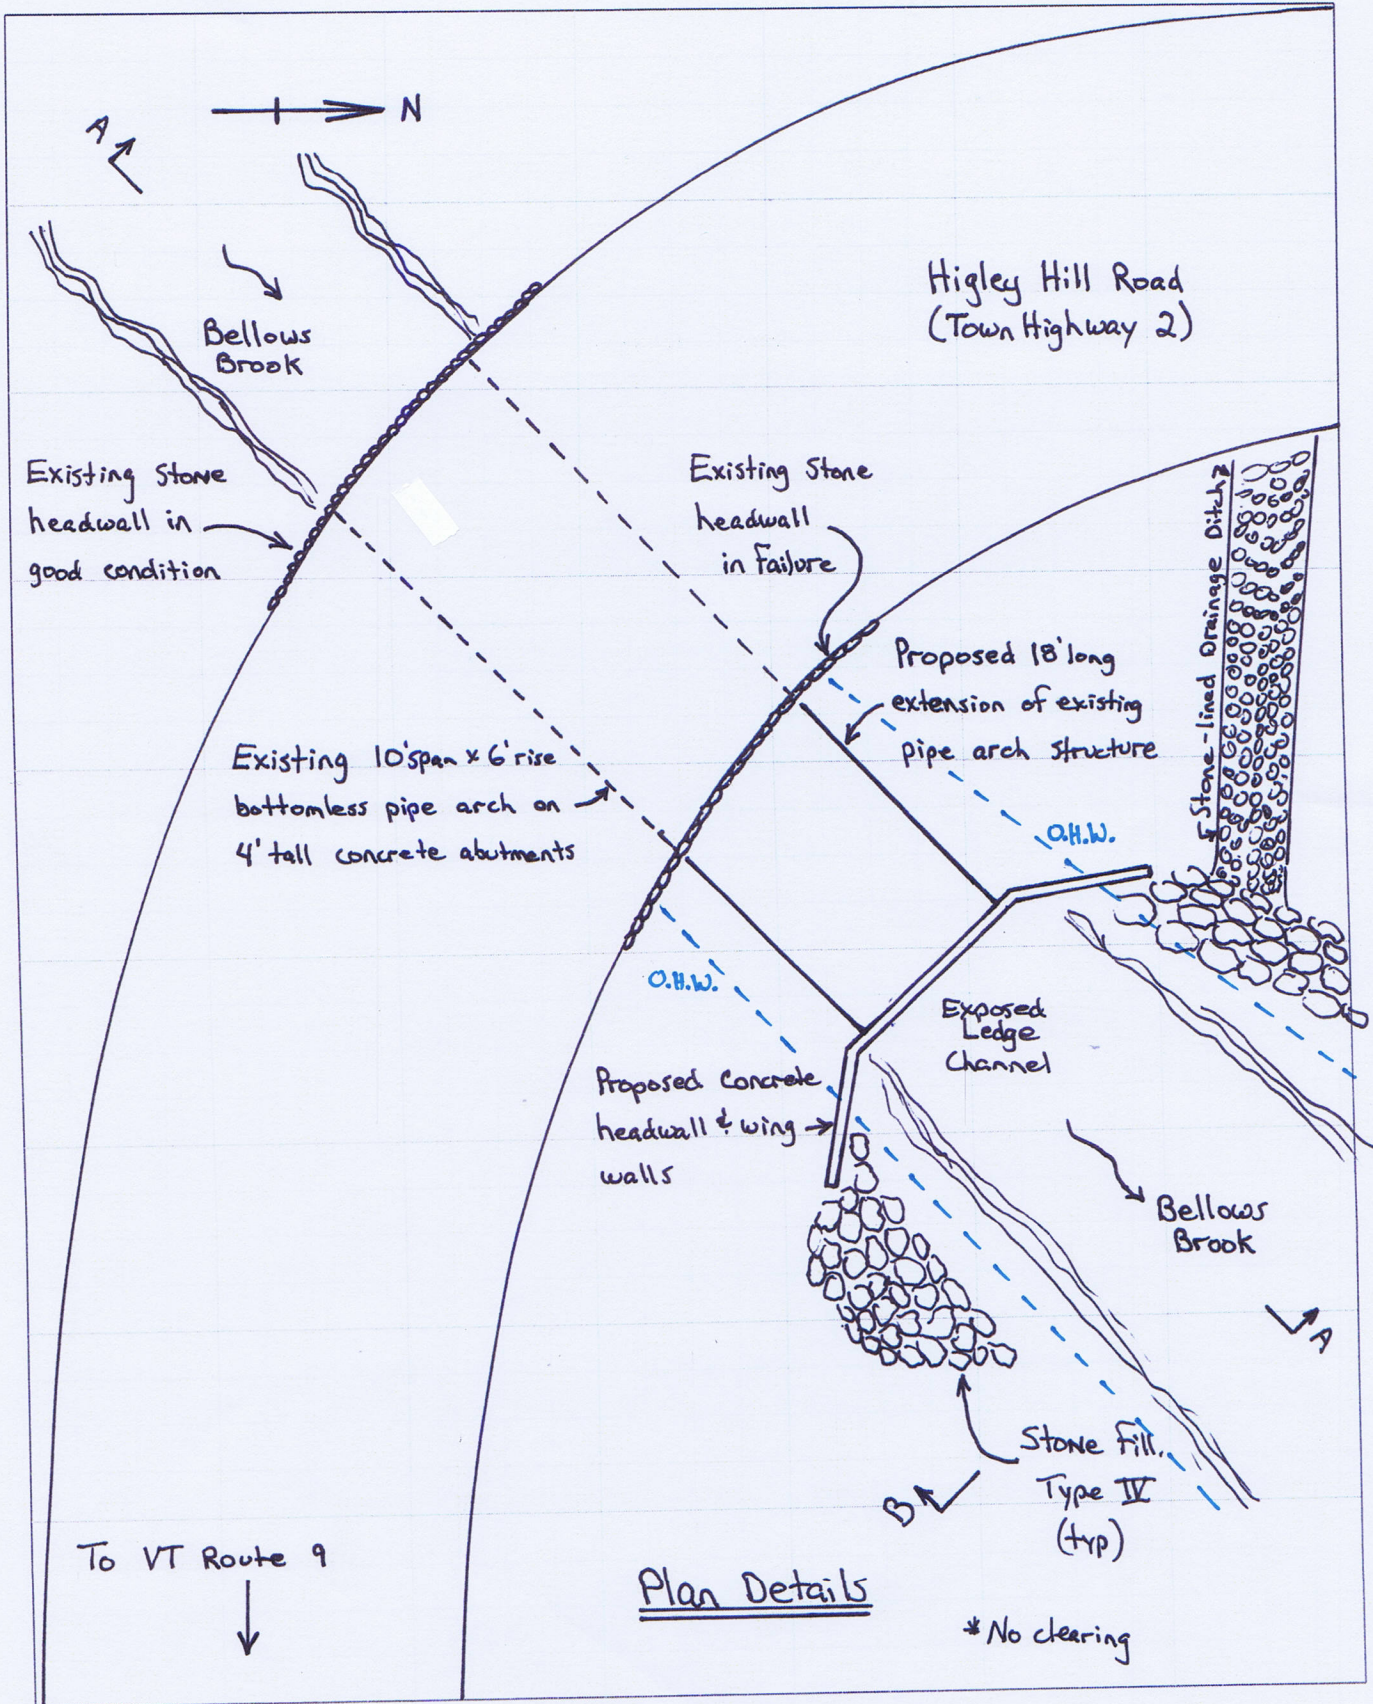 N
A
Bellows
Brook
Higley Hill Road
(Town Highway 2)
Existing Stone
headwall in
good condition
Existing Stone
headwall
in Failure
Stone-lined Drainage Ditch
Proposed 18' long
extension of existing
pipe arch structure
Existing 10' span x 6' rise
bottomless pipe arch on
4' tall concrete abutments
O.H.W.
O.H.W.
Exposed
Ledge
Channel
Proposed Concrete
headwall & wing
walls
Bellows
Brook
A
Stone Fill,
Type IV
(typ)
B
To VT Route 9
Plan Details
*No clearing